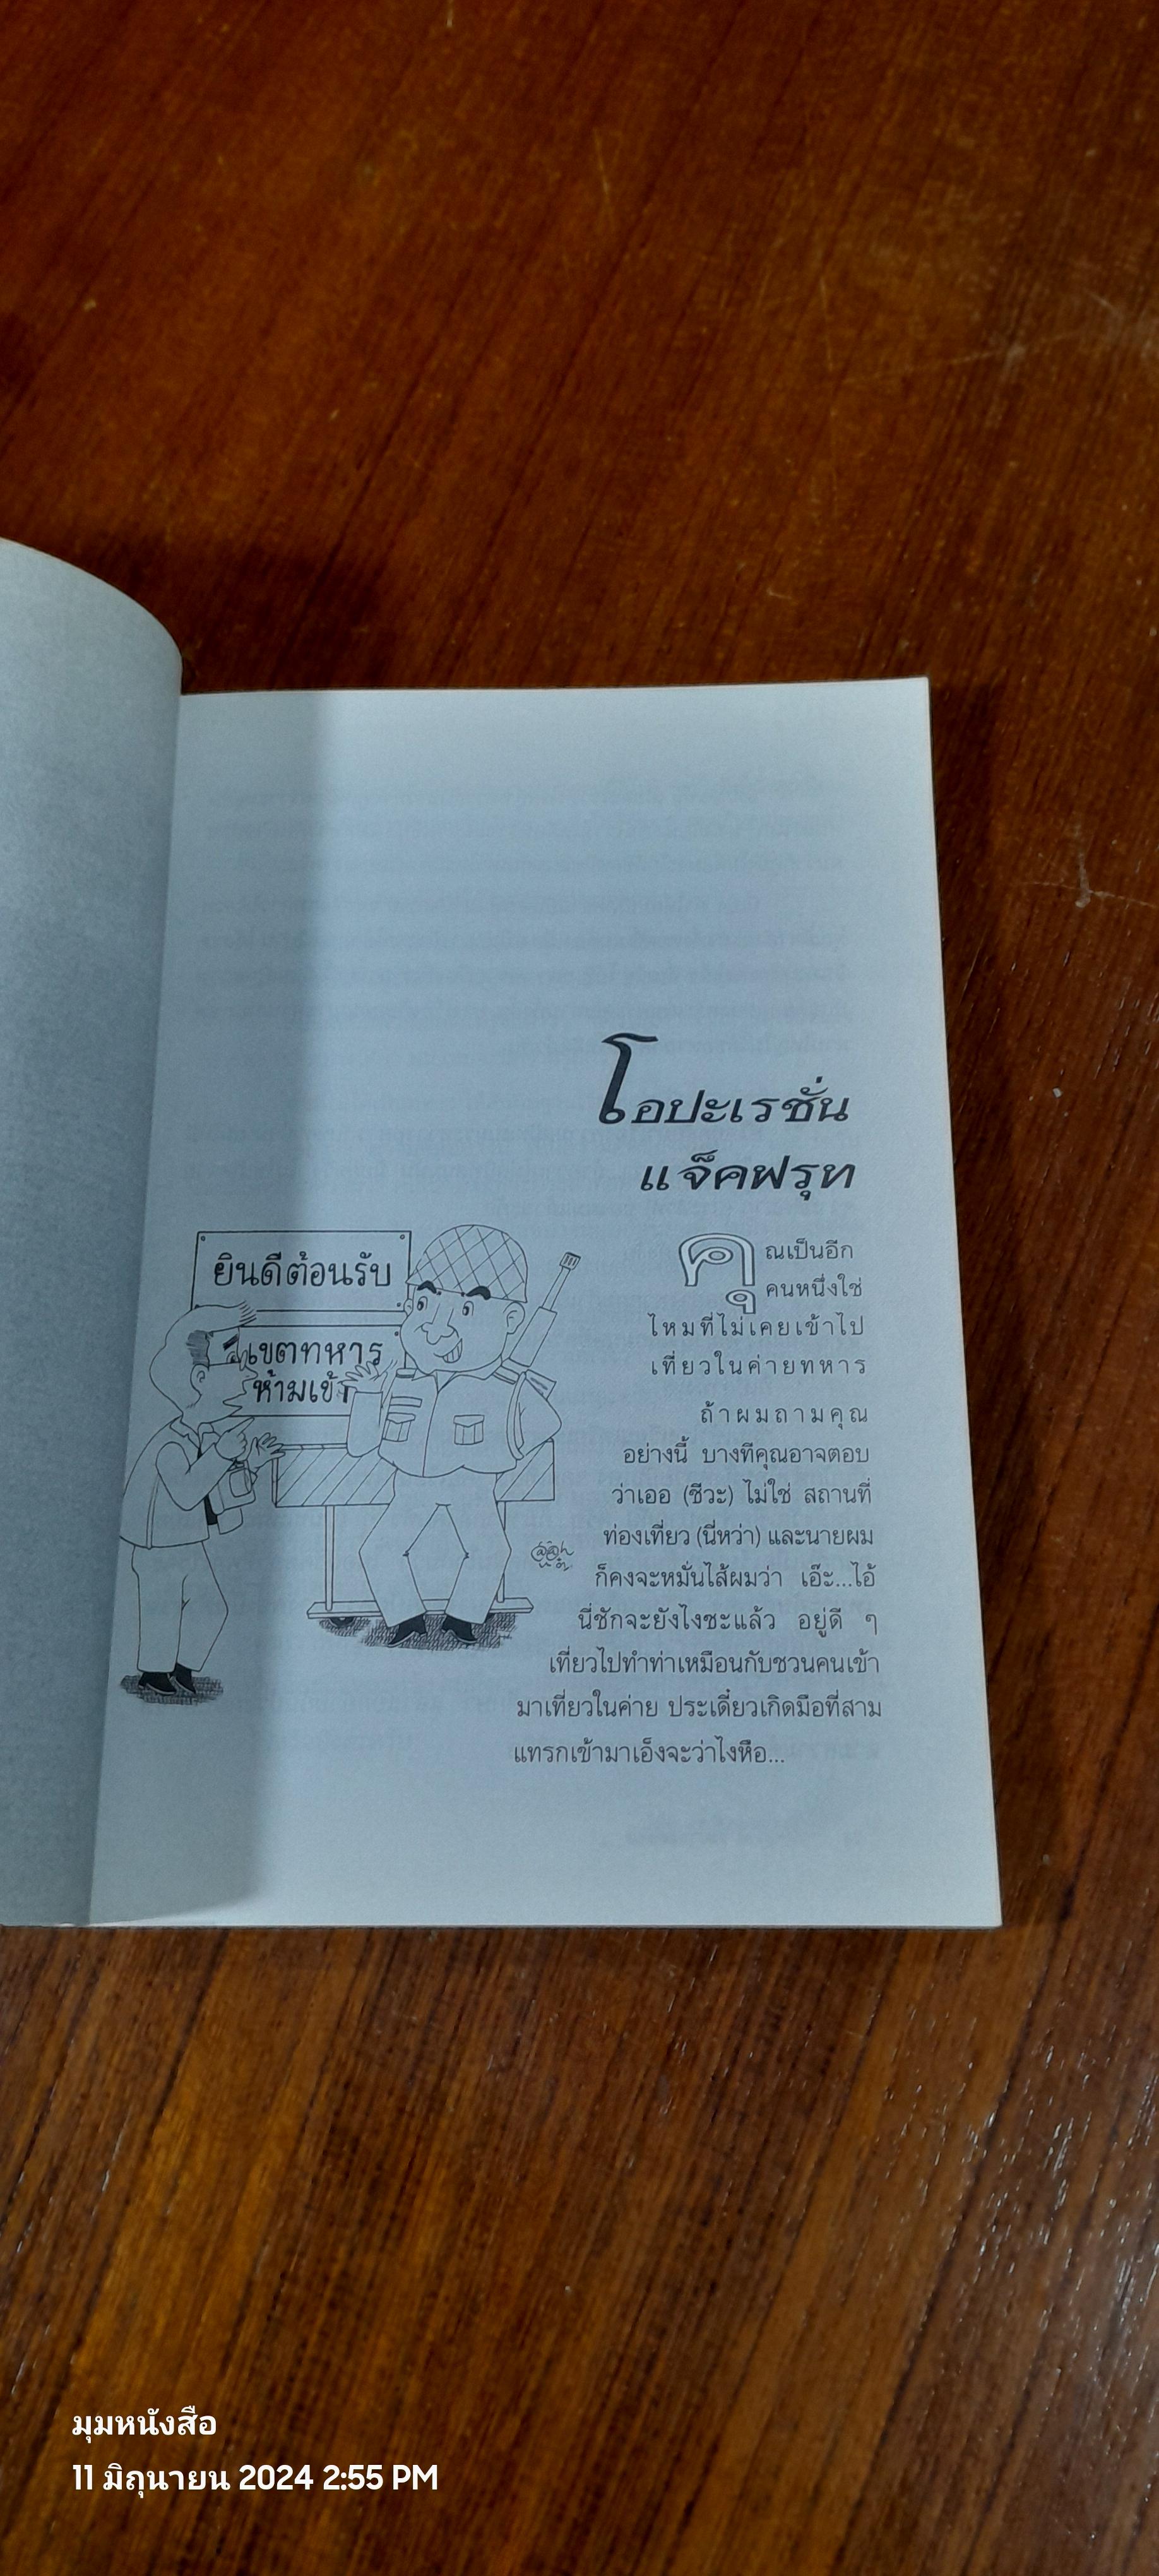 โอปะเรชั่น
แจ็คฟรุท
ยินดีต้อนรับ
เขตทหาร
ห้ามเข้า
คุณเป็นอีก
คนหนึ่งใช่
ไหมที่ไม่เคยเข้าไป
เที่ยวในค่ายทหาร
ถ้าผมถามคุณ
อย่างนี้ บางทีคุณอาจตอบ
ว่าเออ (ซีวะ) ไม่ใช่ สถานที่
ท่องเที่ยว (นี่หว่า) และนายผม
ก็คงจะหมั่นไส้ผมว่า เอ๊ะ...ไอ้
นี่ชักจะยังไงซะแล้ว อยู่ดี ๆ
เที่ยวไปทำท่าเหมือนกับชวนคนเข้า
มาเที่ยวในค่าย ประเดี๋ยวเกิดมือที่สาม
แทรกเข้ามาเอ็งจะว่าไงหือ...
มุมหนังสือ
11 มิถุนายน 2024 2:55 PM